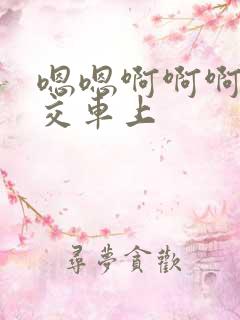 嗯嗯啊啊啊
交車上
尋夢貪歡